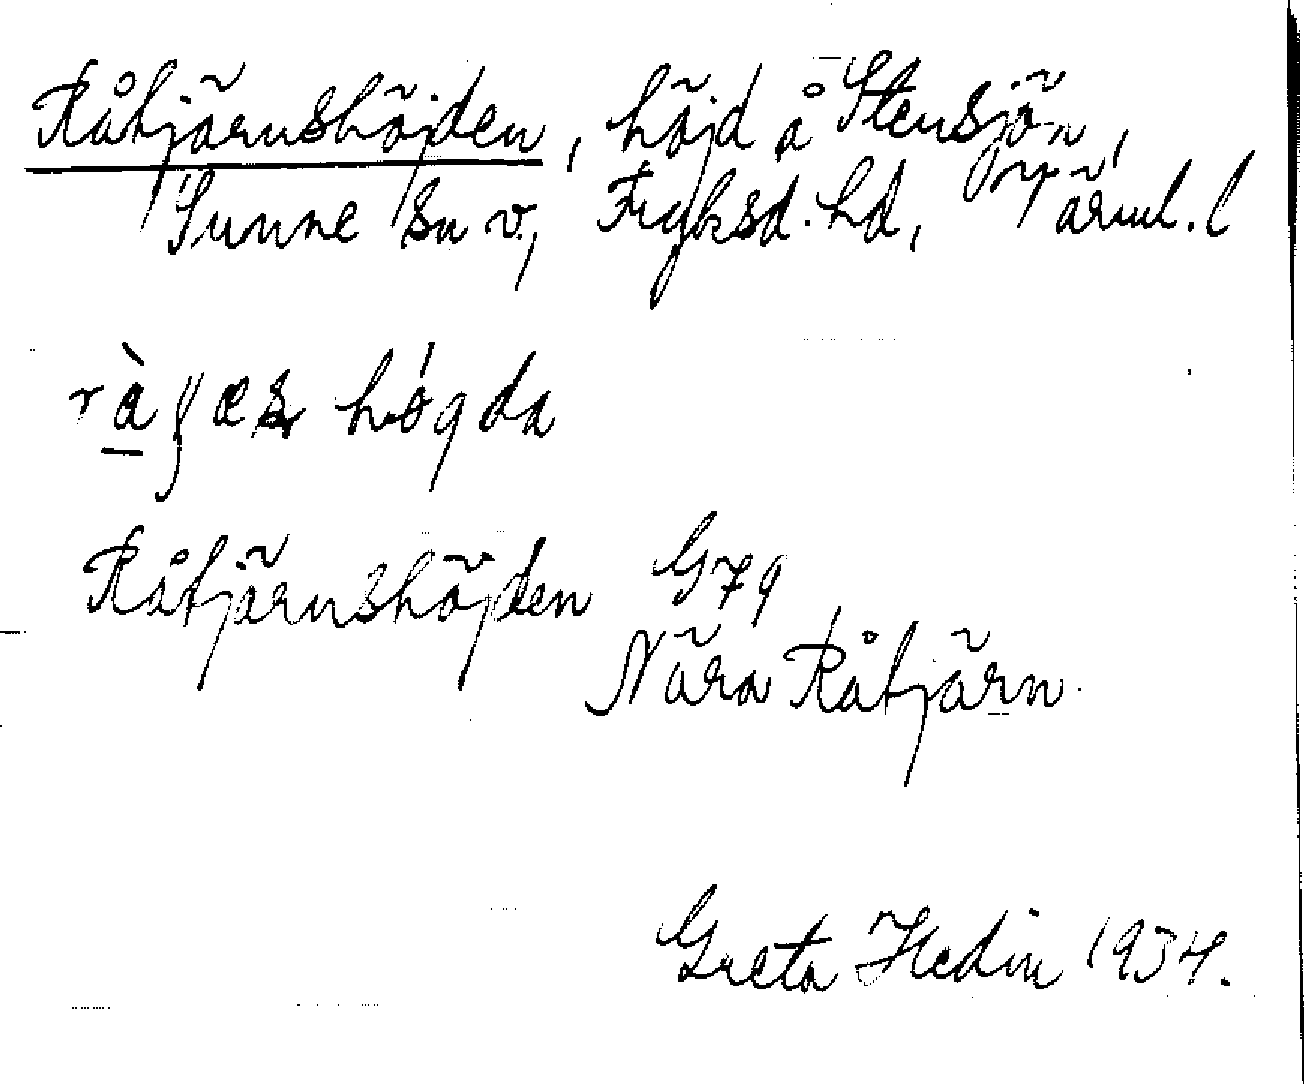 Råtjärnshöjden, höjd å Stensjön,
Sunne sn v., Fryksd. hd, Värml. l
högda
Råtjärnshöjden G79
Nära Råtjärn
Greta Hedin 1934.